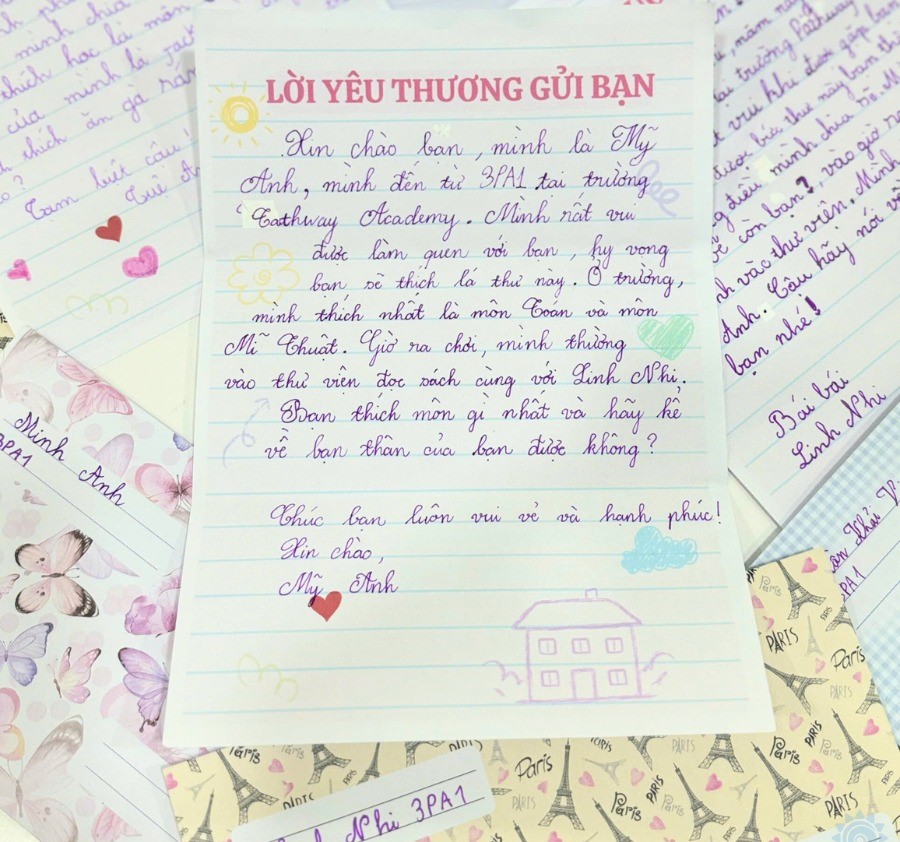 LỜI YÊU THƯƠNG GỬI BẠN
Xin chào bạn, mình là Mỹ
Anh, mình đến từ 3PA1 tại trường
Pathway Academy. Mình rất vui
được làm quen với bạn, hy vọng
bạn sẽ thích lá thư này. Ở trường,
mình thích nhất là môn Toán và môn
Mĩ Thuật. Giờ ra chơi, mình thường
vào thư viện đọc sách cùng với Linh Nhi.
Bạn thích môn gì nhất và hãy kể
về bạn thân của bạn được không?
Chúc bạn luôn vui vẻ và hạnh phúc!
Xin chào,
Mỹ Anh
thích học là môn
của mình là
thích ăn gà rán
Tạm biệt cậu!
Tuệ
Minh Anh
3PA1
năm nay
tại trường Pathway
vui khi được gặp bạn
được bức thư này bạn
điều mình chia
về còn bạn?, vào giờ ra
vào thư viện. Mình
Anh. Cậu hãy nói về
bạn nhé!
Bái bai
Linh Nhi
Khải
3PA1
Nhi 3PA1
Paris
PARIS
Paris
PARIS
Paris
Paris
PARIS
Paris
PARIS